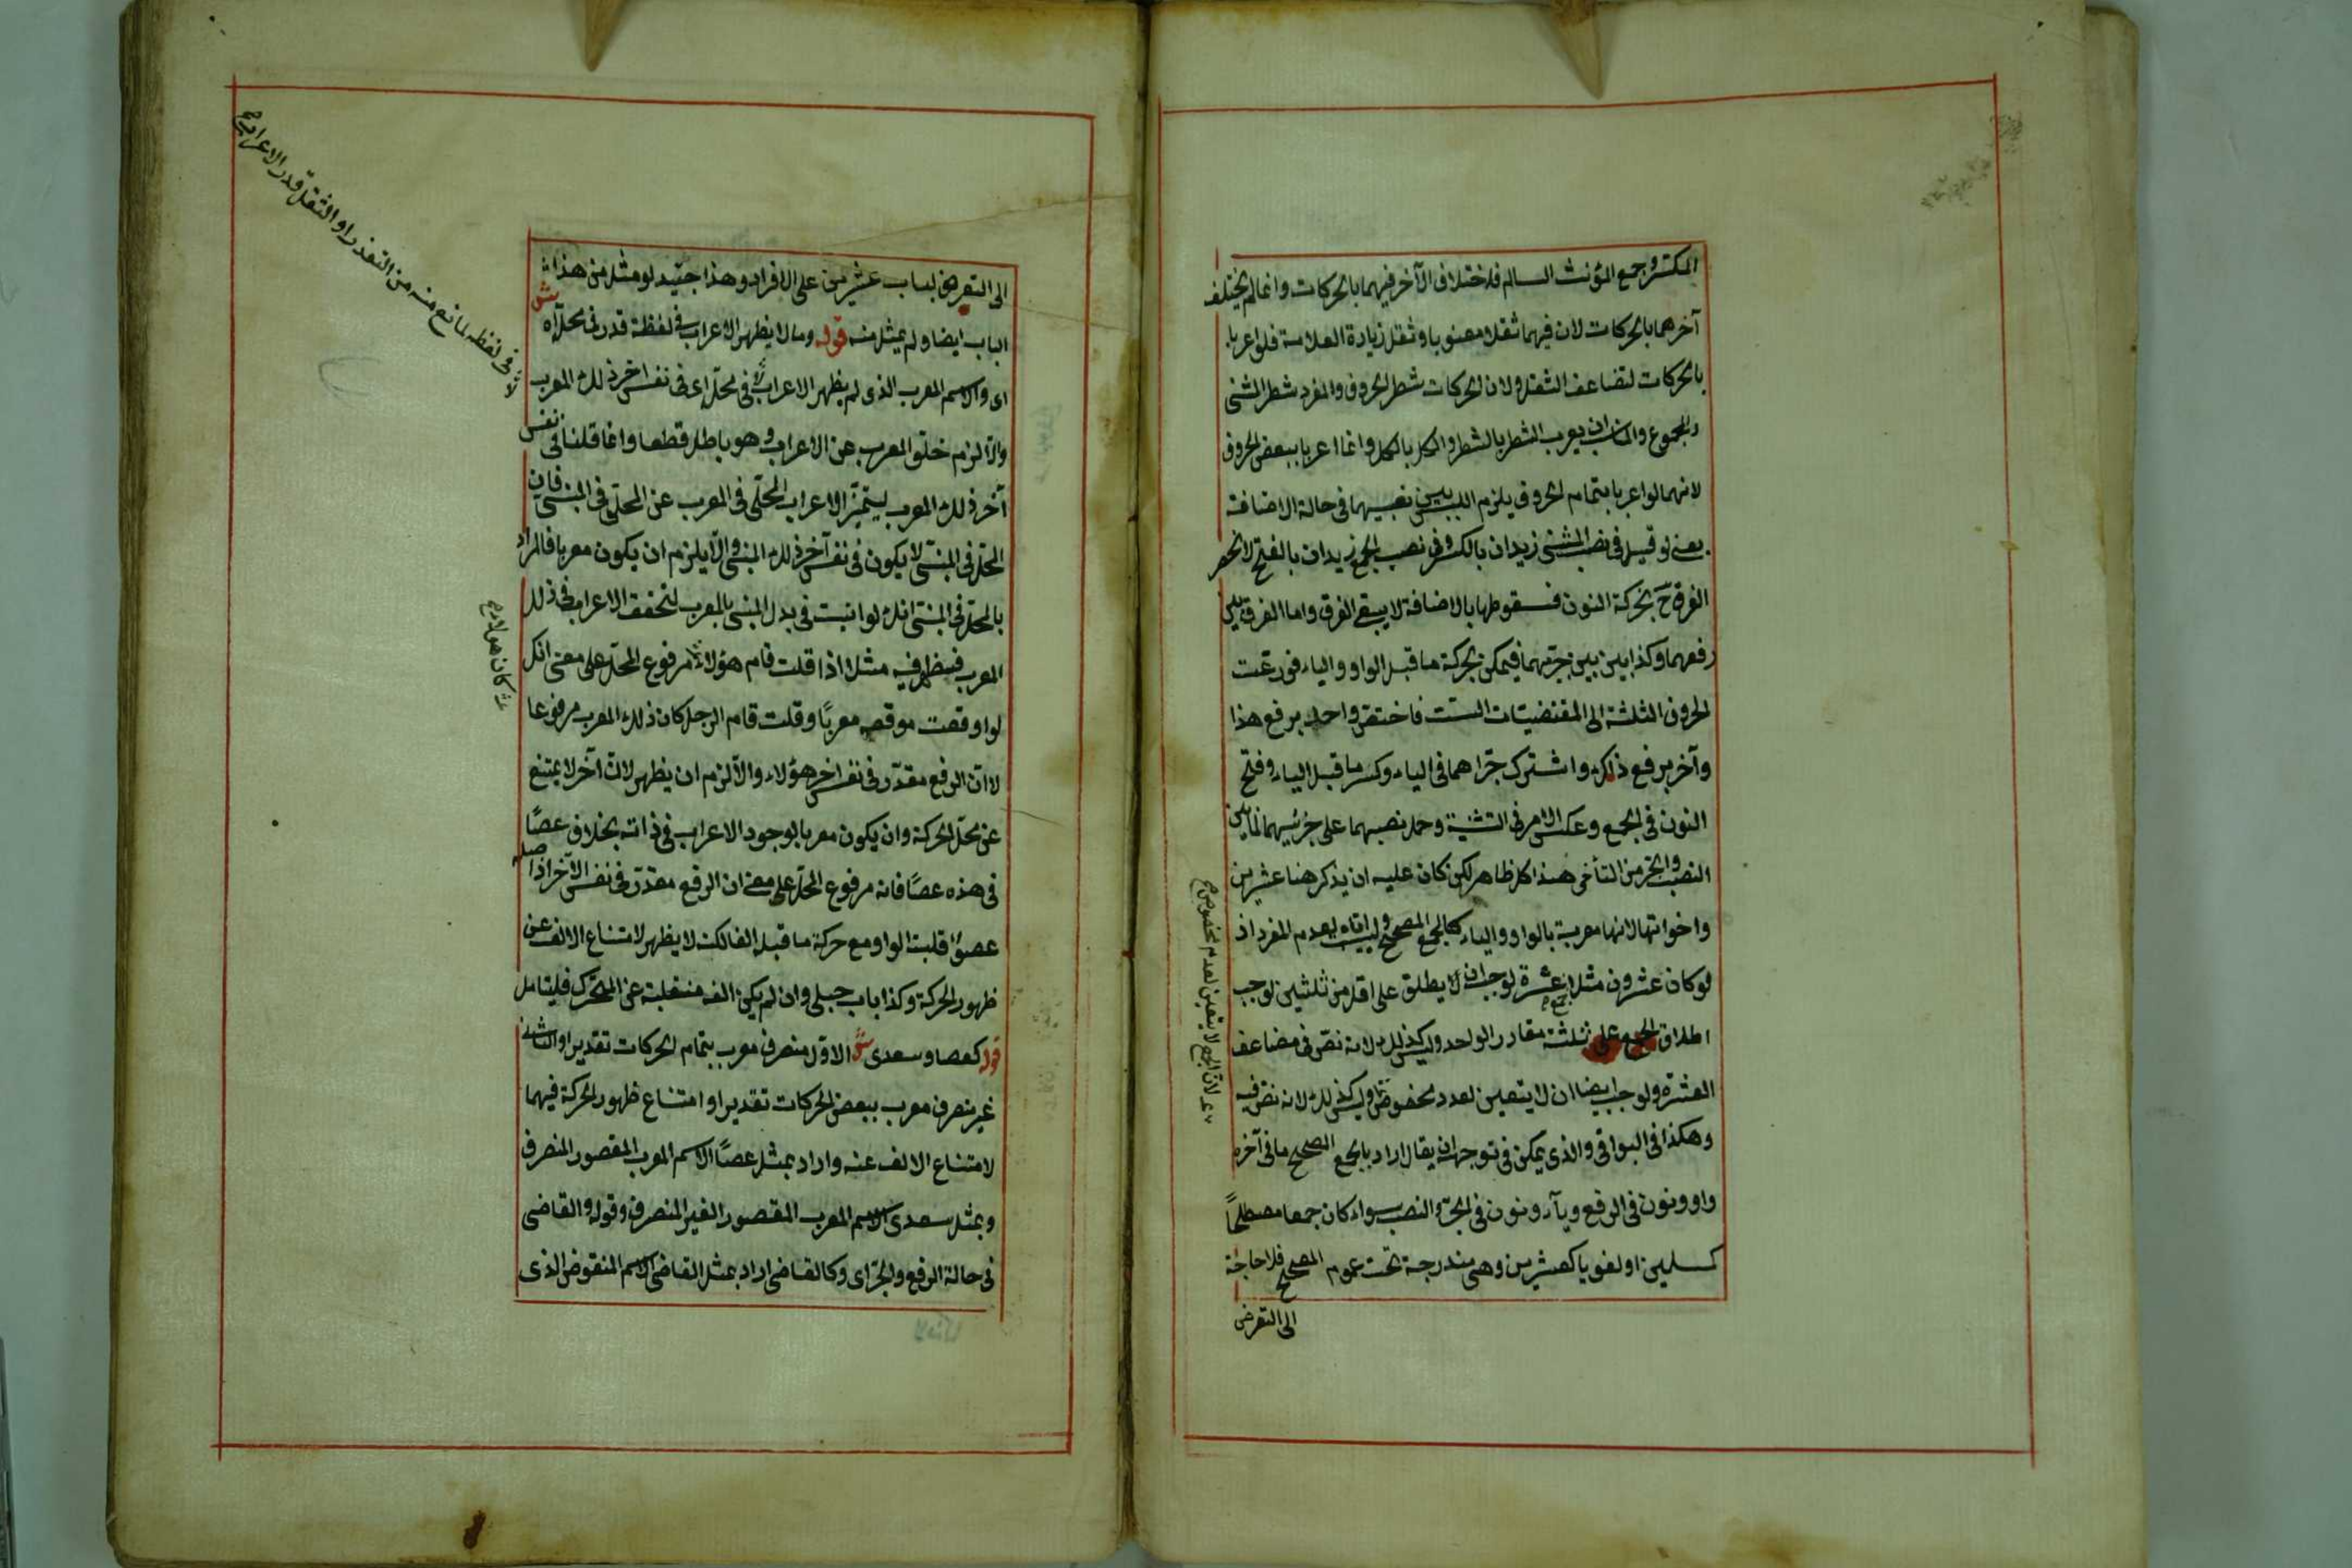 المكسر وجمع المؤنث السالم فلاختلاف الآخر فيهما بالحركات وانما لم يختلف
آخرهما بالحركات لان فيهما ثقلا معنويا وثقل زيادة العلامة فلو اعربا
بالحركات لتضاعف الثقل ولان الحركات شطر الحروف والمفرد شطر المثنى
والمجموع والمناسب ان يعرب الشطر بالشطر والكل بالكل وانما اعربا ببعض الحروف
لانهما لو اعربا بتمام الحروف يلزم اللبس بين نصبيهما فى حالة الاضافة
يعنى لو قيل فى نصب المثنى زيدان بالكسر وفى نصب الجمع زيدان بالفتح لانحصر
الفرق ح بحركة النون فسقوطها بالاضافة لا يبقى الفرق واما الفرق بين
رفعهما وكذا بين جريهما فيمكن بحركة ما قبل الواو والياء فوزعت
الحروف الثلثة الى المقتضيات الست فاختص واحد برفع هذا
وآخر برفع ذلك واشترك جراهما فى الياء وكسر ما قبل الياء وفتح
النون فى الجمع وعكس الامر فى التثنية وحمل نصبهما على جريهما لما بين
النصب والجر من التأخى هذا كله ظاهر لكن كان عليه ان يذكر هنا عشرين
واخواتها لانها معربة بالواو والياء كالجمع المصحح وليست اياه لعدم المفرد اذ
لو كان عشرون مثلا جمع عشرة لوجب ان لا يطلق على اقل من ثلثين لوجب
اطلاق الجمع على ثلثة مقادر الواحد وليس كذلك لانه نص فى مضاعف
العشرة ولوجب ايضا ان لا يتعين لعدد مخصوص وليس كذلك لانه نص فيه
وهكذا فى البواقى والذى يمكن فى توجيهه ان يقال اراد بالجمع الصحيح ما فى آخره
واو ونون فى الرفع وياء ونون فى الجر والنصب سواء كان جمعا مصطلحًا
كمسلمين او لغويا كعشرين وهى مندرجة تحت عموم المصحح فلا حاجة
الى التعرض
لان الجمع لا يتعين لعدد مخصوص
الى التعرض لباب عشرين على الافراد وهذا جيد لو مثل من هذا
الباب ايضا ولم يمثل منه قوله وما لا يظهر الاعراب فى لفظه قدر فى محله ش
اى والاسم المعرب الذى لم يظهر الاعراب فى محله اى فى نفس آخر ذلك المعرب
والا لزم خلو المعرب عن الاعراب وهو باطل قطعا وانما قلنا فى نفس
آخر ذلك المعرب ليتميز الاعراب المحلى فى المعرب عن المحلى فى المبنى فان
المحل فى المبنى لا يكون فى نفس آخر ذلك المبنى والا يلزم ان يكون معربا فالمراد
بالمحل فى المبنى انك لو اتيت فى بدل المبنى بالمعرب لتحقق الاعراب فى ذلك
المعرب فيظهر فيه مثلا اذا قلت قام هؤلاء مرفوع المحل على معنى انك
لو اوقعت موقعه معربًا وقلت قام الرجل كان ذلك المعرب مرفوعا
لا ان الرفع مقدر فى نفس آخر هؤلاء والا لزم ان يظهر لان آخره لا يمتنع
عن محل الحركة وان يكون معربا لوجود الاعراب فى ذاته بخلاف عصًا
فى هذه عصًا فانه مرفوع المحل على معنى ان الرفع مقدر فى نفس الآخر اذ اصله
عصو قلبت الواو مع حركة ما قبله الفا لكن لا يظهر لامتناع الالف عن
ظهور الحركة وكذا باب حبلى وان لم يكن الفه منقلبة عن المتحرك فليتامل
قوله كعصا وسعدى ش الاول منصرف معرب بتمام الحركات تقديرا والثانى
غير منصرف معرب ببعض الحركات تقديرا وامتناع ظهور الحركة فيهما
لامتناع الالف عنه واراد بمثل عصًا الاسم المعرب المقصور المنصرف
وبمثل سعدى الاسم المعرب المقصور الغير المنصرف وقوله والقاضى
فى حالة الرفع والجر اى وكالقاضى اراد بمثل القاضى الاسم المنقوص الذى
فى لفظه لمانع منه من التعذر او الثقل قدر الاعراب
كان هؤلاء